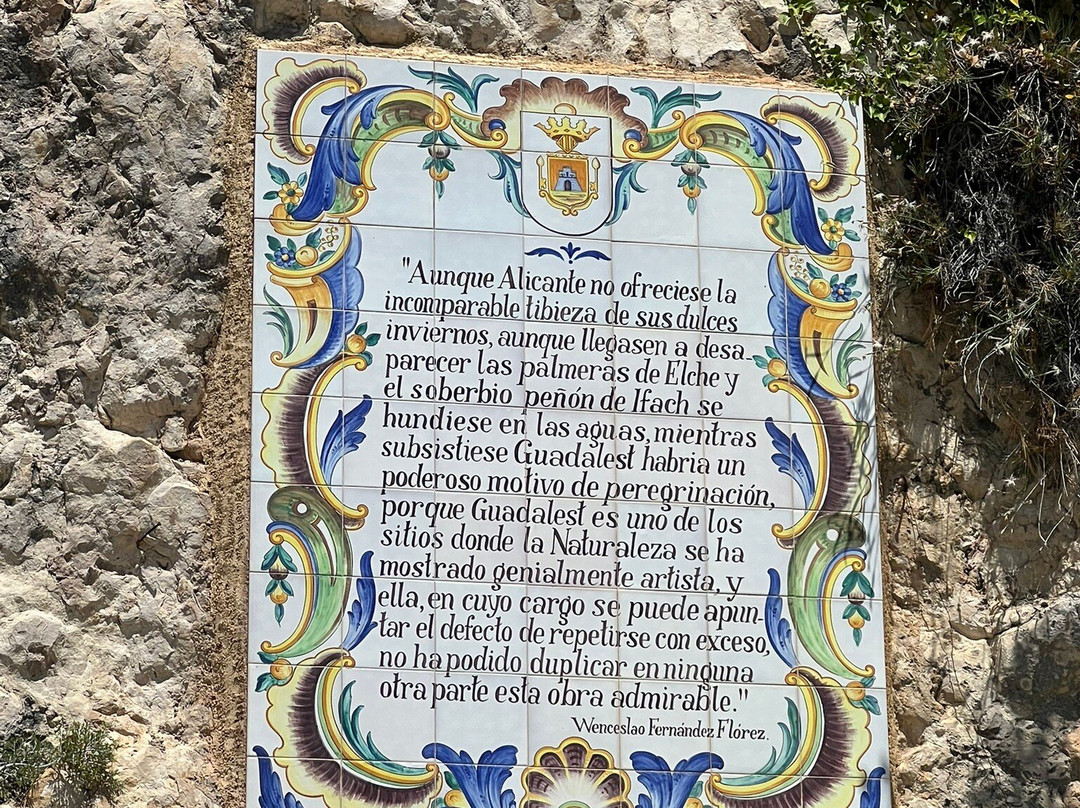 "Aunque Alicante no ofreciese la
incomparable tibieza de sus dulces
inviernos, aunque llegasen a desa-
parecer las palmeras de Elche y
el soberbio peñón de Ifach se
hundiese en las aguas, mientras
subsistiese Guadalest habria un
poderoso motivo de peregrinación,
porque Guadalest es uno de los
sitios donde la Naturaleza se ha
mostrado genialmente artista, y
ella, en cuyo cargo se puede apun-
tar el defecto de repetirse con exceso,
no ha podido duplicar en ninguna
otra parte esta obra admirable."
Wenceslao Fernández Flórez.